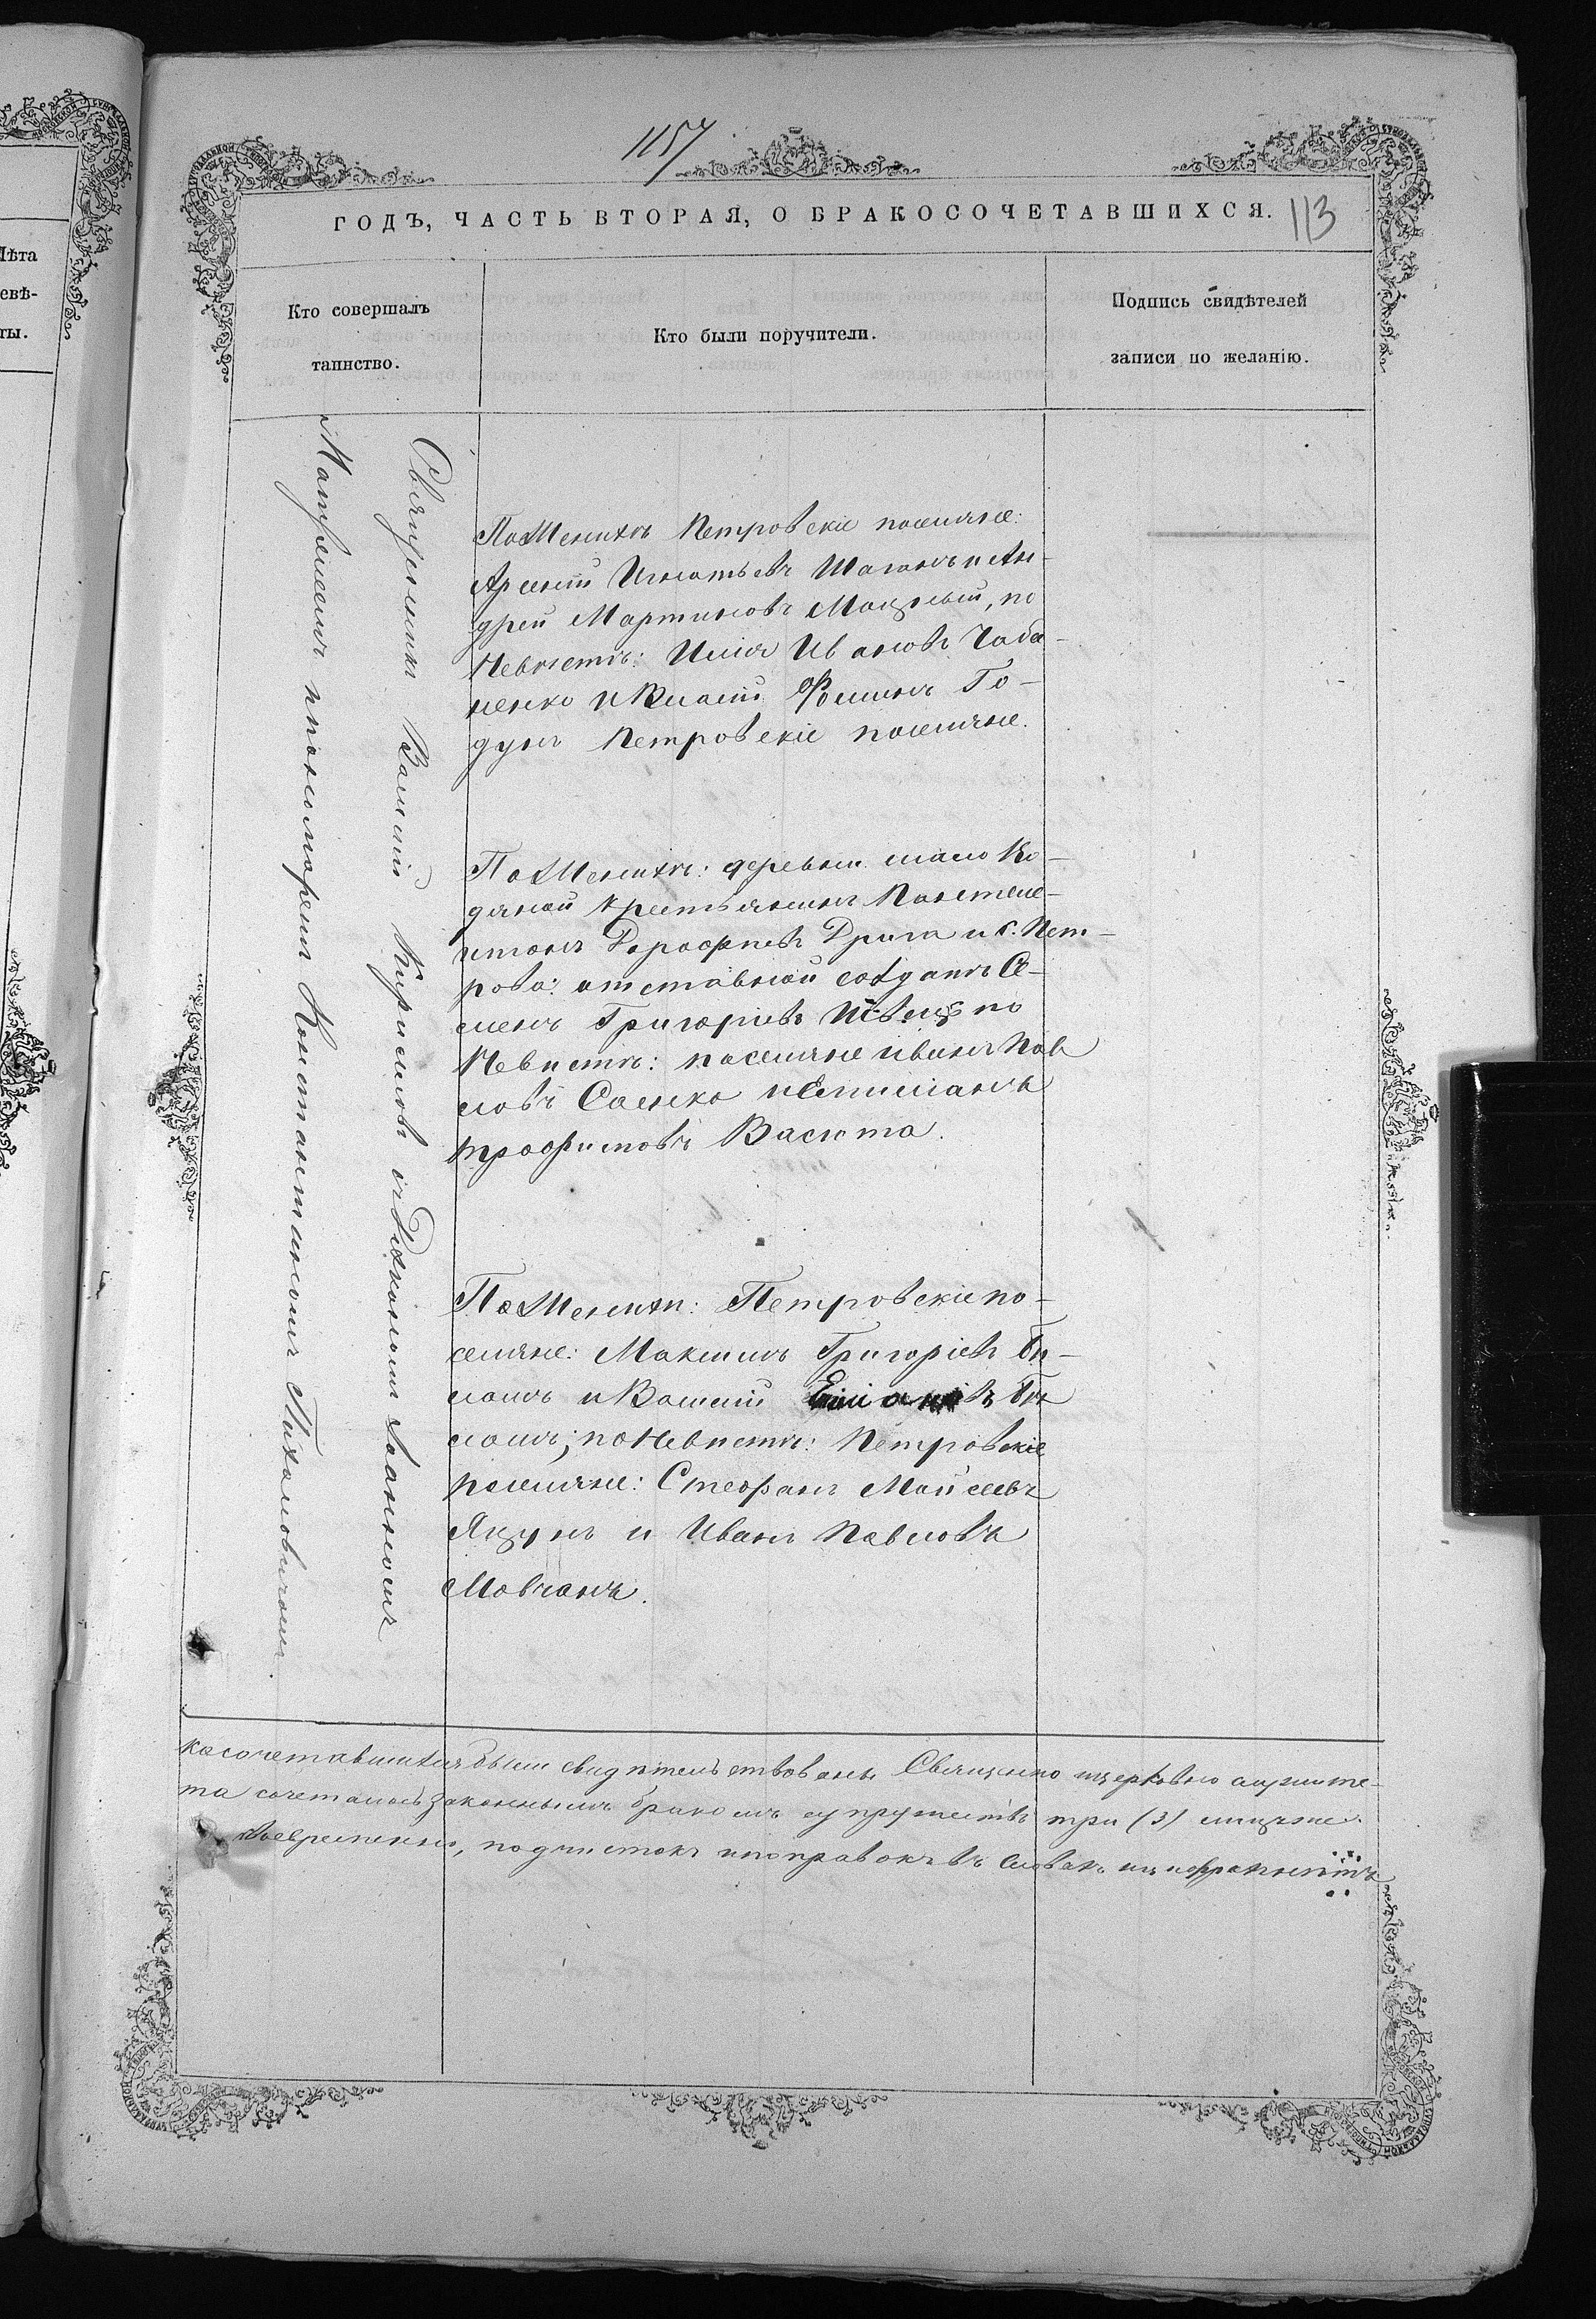 1157
ГОДЪ, ЧАСТЬ ВТОРАЯ, О БРАКОСОЧЕТАВШИХСЯ.
113
Кто совершалъ
таинство.
Кто были поручители.
Подпись свидѣтелей
записи по желанію.
Лѣта
невѣ-
ты.
Священникъ Василій Кириловъ съ Діакономъ Іоанномъ
и пономаремъ Константиномъ
По Женихѣ Петровскіе поселяне:
Арсеній Игнатьевъ Шаганъ и Ан-
дрей Мартиновъ Моцный, по
Невѣстѣ: Илія Ивановъ Чаба-
ненко и Власій Фоминъ Го-
дунъ Петровскіе поселяне.
По Женихѣ: деревни мало Ко-
дяной Крестьянинъ Понтеле-
имонъ Дорофѣевъ Дрига и с. Пет-
рова: отставной солдатъ Се-
менъ Григоріевъ Швецъ по
Невѣстѣ: поселяне иванъ Пав
ловъ Саенко и Емиліанъ
трофимовъ Васюта.
По Женихѣ: Петровскіе по-
селяне: Максимъ Григоріевъ Бѣ-
лашъ и Василій Бѣ
лашъ; по Невѣстѣ: Петровскіе
поселяне: Стефанъ Мойсеевъ
Яцунъ и Иванъ Павловъ
Мовчанъ.
косочетавшихся были свидѣтельствованы Священно и церковно служите-
та сочеталось законнымъ бракомъ супружествъ три (3)
подчистокъ и поправокъ въ словахъ и цифрахъ нѣтъ